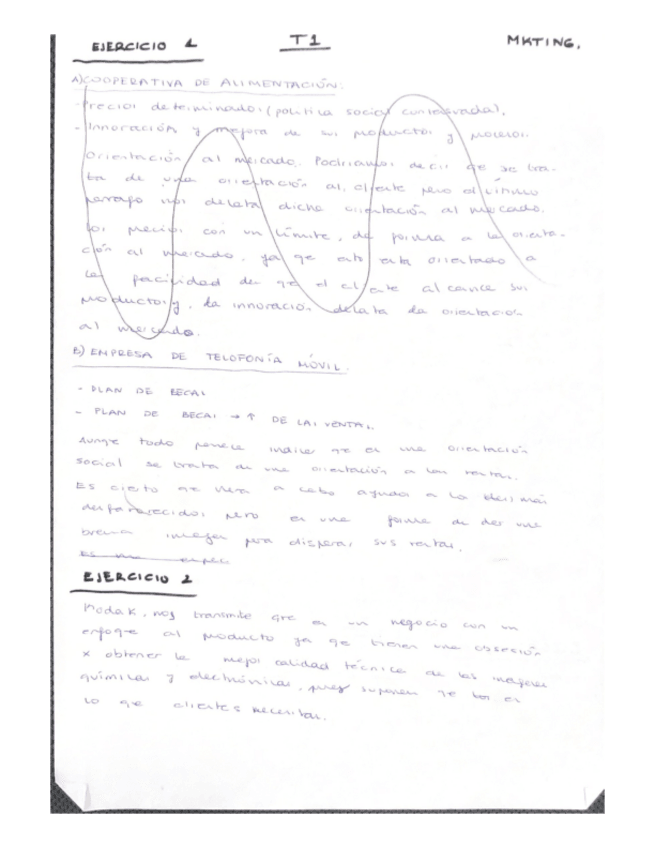 EJERCICIO 1 T1 MKTING.
A) COOPERATIVA DE ALIMENTACIÓN:
- Precios determinados (política social conservada).
- Innovación y mejora de sus productos y procesos.
Orientación al mercado. Podríamos decir qe se tra-
ta de una orientación al cliente pero el último
parrafo nos delata dicha orientación al mercado.
los precios con un límite, da forma a la orienta-
ción al mercado, ya qe esto esta orientado a
la facilidad de qe el cliente alcance sus
productos y, la innovación delata la orientación
al mercado.
B) EMPRESA DE TELOFONÍA MÓVIL.
- PLAN DE BECAS
- PLAN DE BECAS → ↑ DE LAS VENTAS.
Aunqe todo parece indicar qe es una orientación
social se trata de una orientación a las ventas.
Es cierto qe lleva a cabo ayuda a los demás
desfavorecidos, pero es una forma de dar una
buena imagen para disparar sus ventas.
Es una
EJERCICIO 2
Kodak, nos transmite qe es un negocio con un
enfoqe al producto ya qe tienen una obsesión
x obtener la mejor calidad técnica de las imágenes
químicas y electrónicas, pues suponen qe es
lo que clientes necesitan.